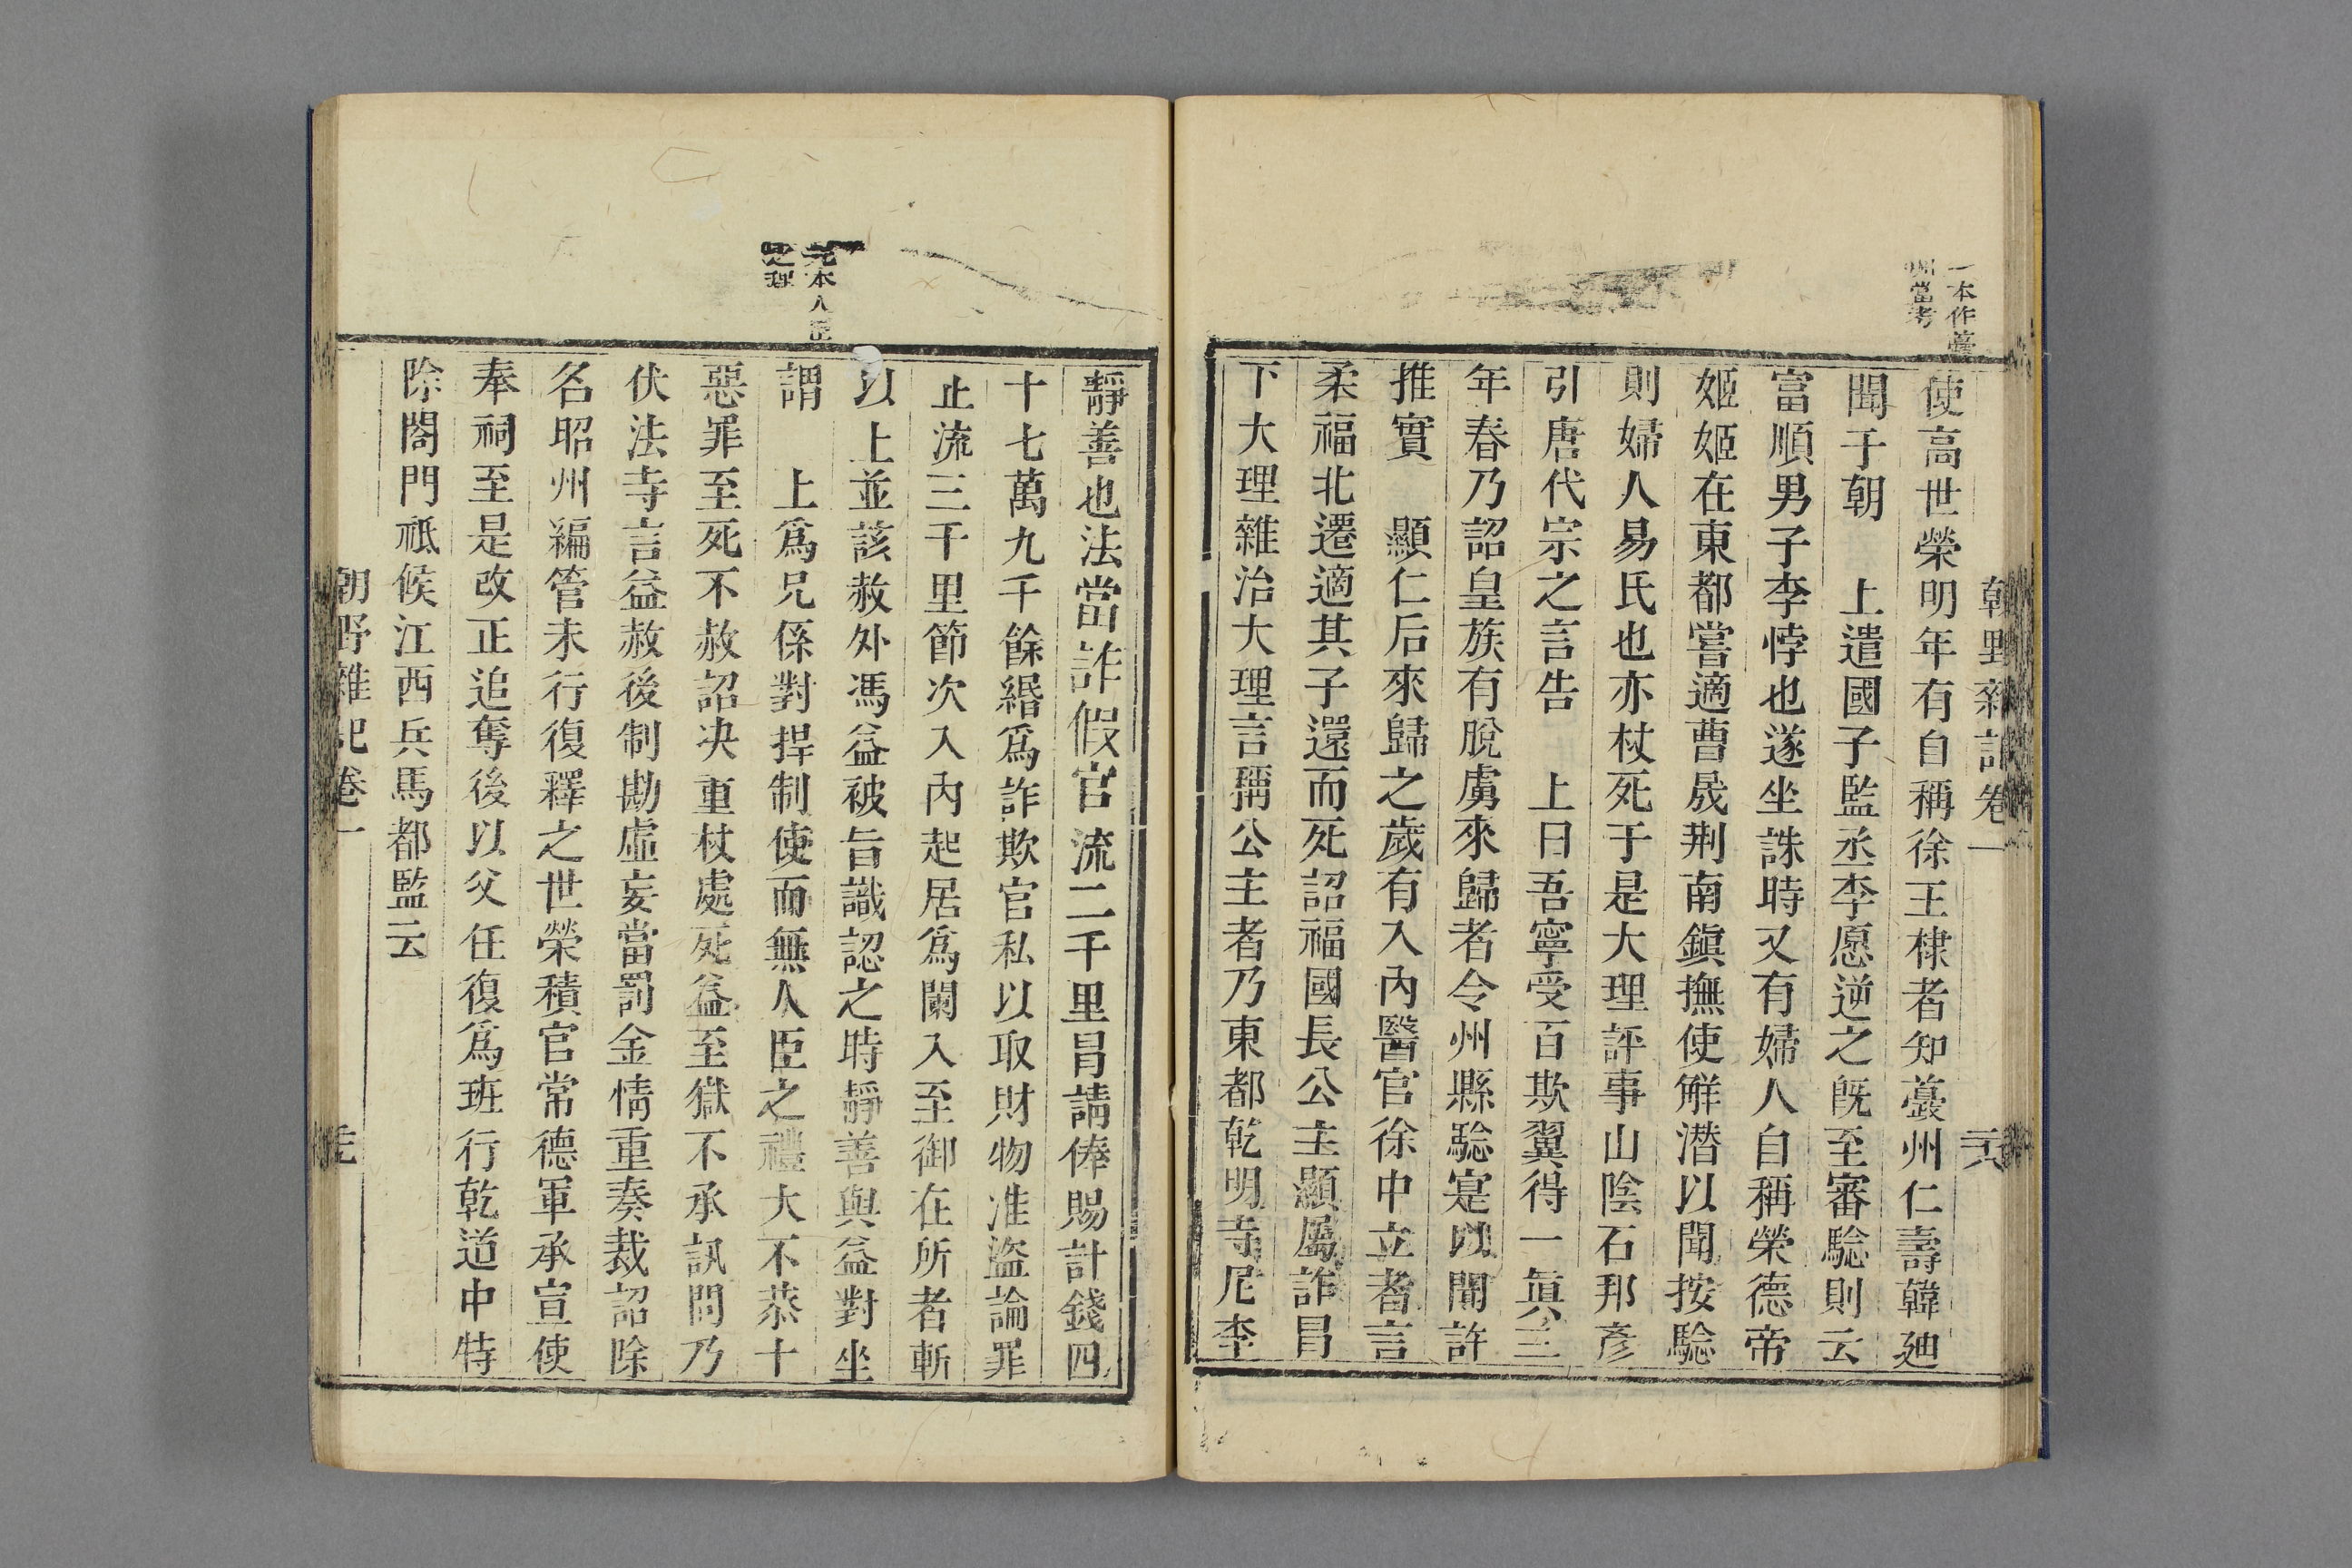 朝野雜記卷一
一本作薹
州當考
使高世榮明年有自稱徐王棣者知薹州仁壽韓廸
聞于朝　上遣國子監丞李愿逆之旣至審騐則云
富順男子李悖也遂坐誅時又有婦人自稱榮德帝
姬姬在東都嘗適曹晟荆南鎭撫使觧潛以聞按騐
則婦人易氏也亦杖死于是大理評事山陰石邦彥
引唐代宗之言告　上曰吾寧受百欺翼得一眞三
年春乃詔皇族有脫虜來歸者令州縣騐寔以聞許
推實　顯仁后來歸之歲有入內醫官徐中立者言
柔福北遷適其子還而死詔福國長公主顯屬詐冒
下大理雜治大理言稱公主者乃東都乾明寺尼李
元本人臣
之理
靜善也法當詐假官流二千里冒請俸賜計錢四
十七萬九千餘緡爲詐欺官私以取財物准盜論罪
止流三千里節次入內起居爲闌入至御在所者斬
以上並該赦外馮益被旨識認之時靜善與益對坐
謂　上爲兄係對捍制使而無人臣之禮大不恭十
惡罪至死不赦詔決重杖處死益至獄不承訊問乃
伏法寺言益赦後制勘虛妄當罰金情重奏裁詔除
名昭州編管未行復釋之世榮積官常德軍承宣使
奉祠至是改正追奪後以父任復爲班行乾道中特
除閤門祗候江西兵馬都監云
朝野雜記卷一